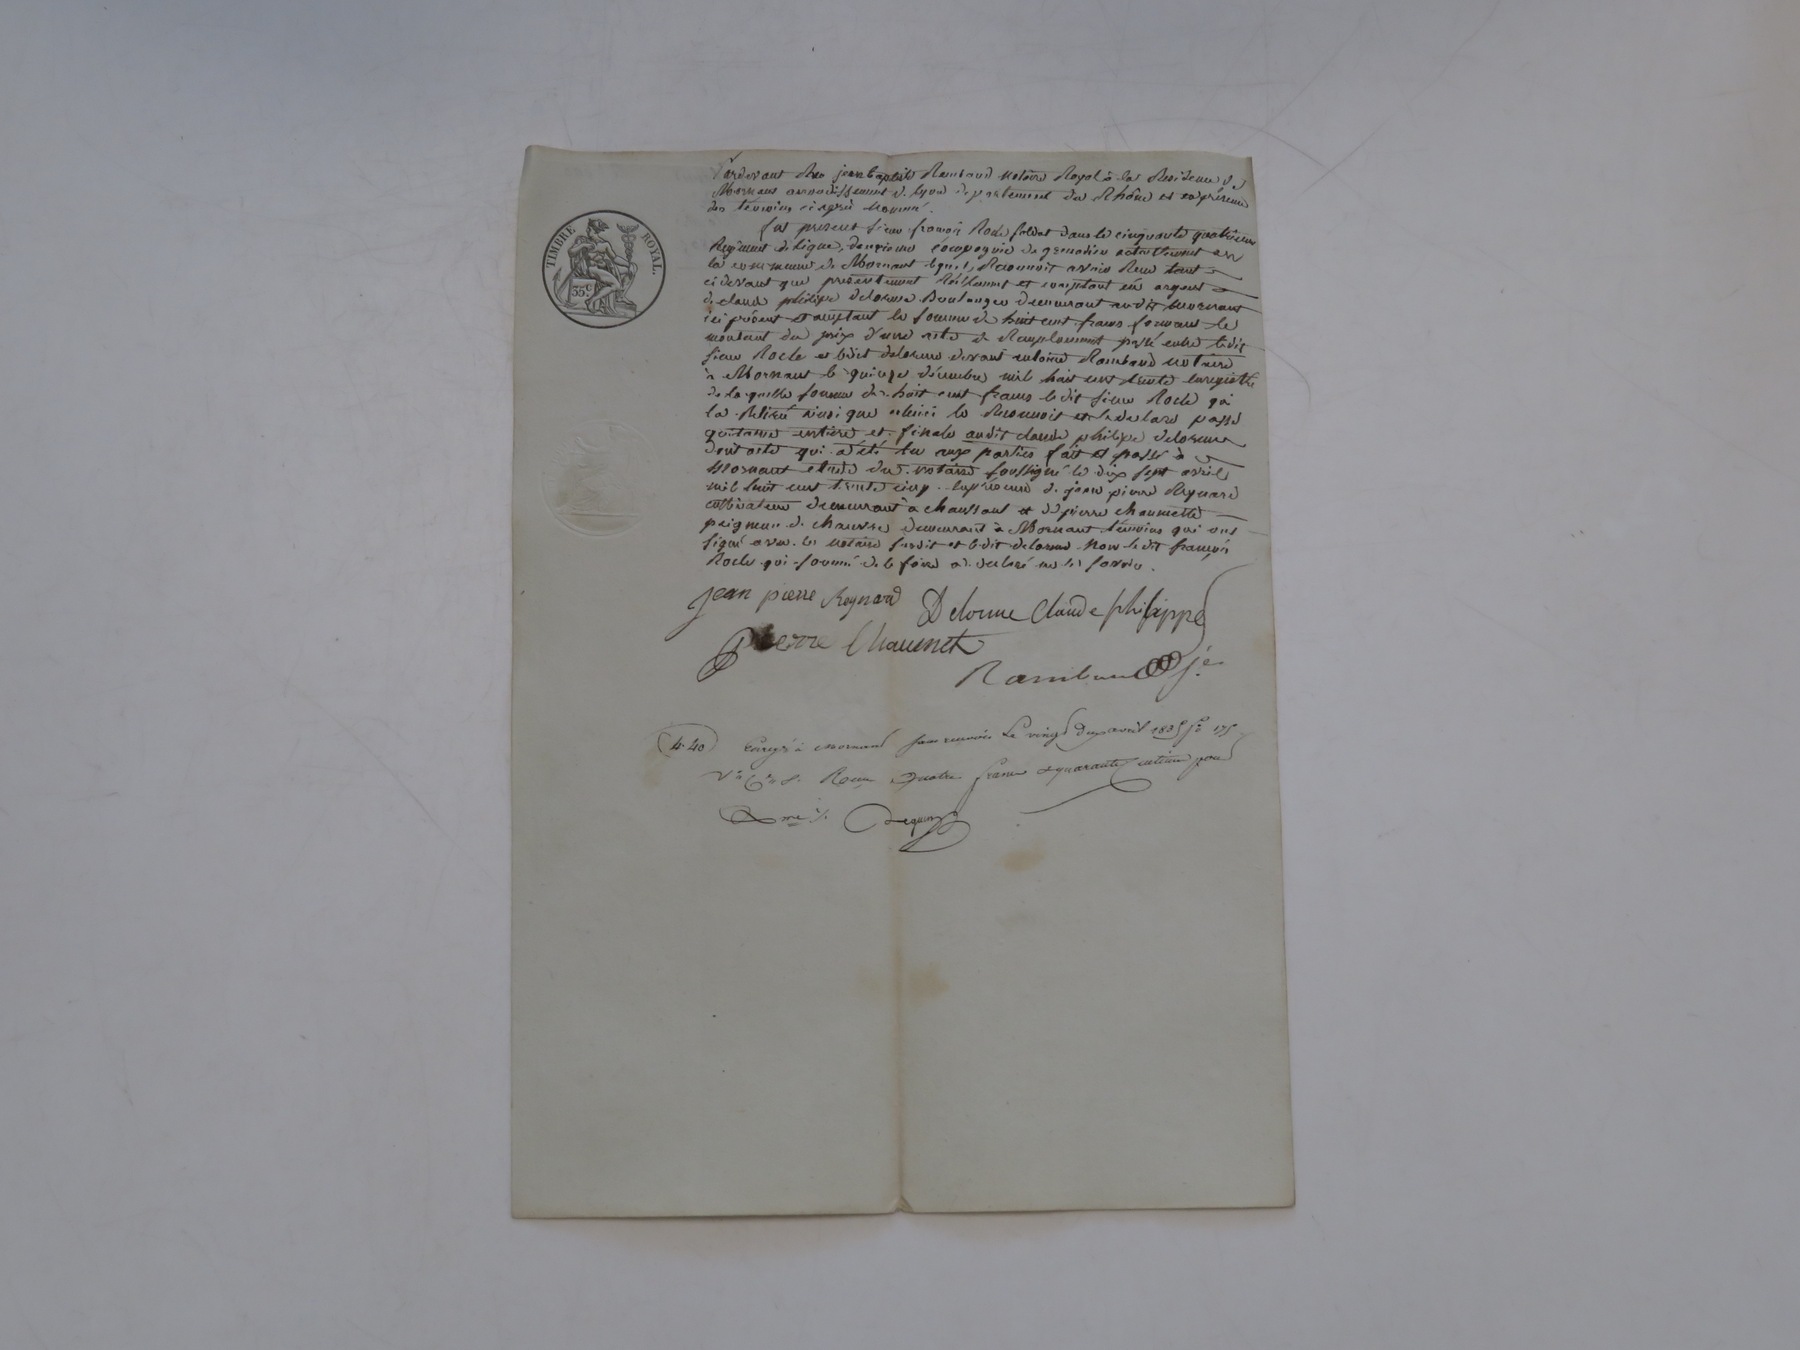 TIMBRE ROYAL.
35 c
Pardevant Me jean Baptiste Rambaud notaire Royal à la Residence de
Mornant arrondissement de Lyon departement du Rhône et en présence
des témoins ci après nommé.
fut present sieur françois Rocle soldat dans le cinquante quatrieme
Regiment de ligne, deuxieme compagnie de grenadier actuellement en
la commune de Mornant lequel, Reconnoit avoir Reçu tant
ci devant que présentement Réellement et comptant en argent
de claude philippe delorme Boulanger demeurant audit Mornant
ici présent et acceptant la somme de huit cent francs formant le
montant du prix d'une acte de Remplacement passé entre ledit
sieur Rocle et ledit delorme devant antoine Rambaud notaire
à Mornant le quinze décembre mil huit cent trente enregistré
de laquelle somme de huit cent francs ledit sieur Rocle qui
la Retiré ainsi que celuici le Reconnoit et le declare passe
quittance entière et finale audit claude philippe delorme
dont acte qui a été lu aux parties fait et passé à
Mornant etude du notaire soussigné le dix sept avril
mil huit cent trente cinq. en présence de jean pierre Reynard
cultivateur demeurant à chaussant et de pierre chaumette
peigneur de chanvre demeurant à Mornant témoins qui ont
signé avec le notaire susdit et ledit delorme Non ledit françois
Rocle qui sommé de le faire a declaré ne le savoir.
jean pierre Reynard Delorme Claude philippe
pierre Chaumet
Rambaud je
4.40 Enregé à Mornant sans renvois Le vingt deux avril 1835 fo 175
Vo Ce 8. Reçu quatre francs quarante centimes pour